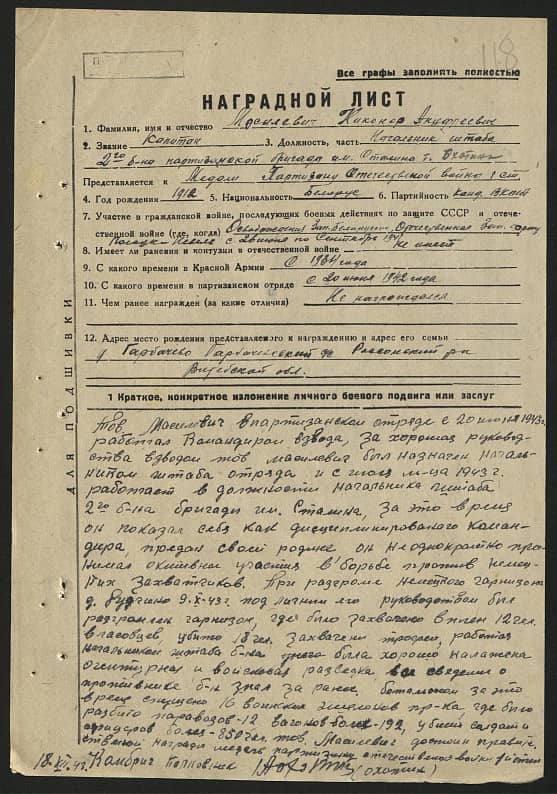 118
Все графы заполнять полностью
НАГРАДНОЙ ЛИСТ
1. Фамилия, имя и отчество Масилевич Никонор
2. Звание Капитан 3. Должность, часть Начальник штаба
2го б-на партизанской бригады им. Сталина т. Охотин
Представляется к Медали Партизану Отечественной войны 1 ст.
4. Год рождения 1912 5. Национальность Белорус 6. Партийность Канд. ВКП(б)
7. Участие в гражданской войне, последующих боевых действиях по защите СССР и отече-
ственной войне (где, когда) Освобождения Зап. Белоруссии, Отечественная Зап. фронт
Полоцк-Невель с июня по Сентябрь 1941
8. Имеет ли ранения и контузии в отечественной войне Не имеет
9. С какого времени в Красной Армии С 1934 года
10. С какого времени в партизанском отряде с 20 июня 1942 года
11. Чем ранее награжден (за какие отличия) Не награждался
12. Адрес место рождения представляемого к награждению и адрес его семьи
д Гарбачево Гарбачевский Россонский р-н
Витебской обл.
ДЛЯ ПОДШИВКИ
1 Краткое, конкретное изложение личного боевого подвига или заслуг
Тов. Масилевич в партизанском отряде с 20 июня 1943г.
работал Командиром взвода, За хорошия руковод-
ства взводом тов Масилевич был назначен началь-
ником штаба отряда и с м-ца 1943 г.
работает в должности Начальника штаба
2го б-на бригады им. Сталина, За это время
он показал себя как дисциплинированого Коман-
дира, предан своей родине он неоднократно при-
нимал активный участия в борьбе против немец-
ких Захватчиков. При разгроме немецкого гарнизона
д. 9.X-43г. под личным его руководством был
разгромлен гарнизон, где было захвачено в плен 12 чел.
власовцев, убито 18 чел. Захвачены трофеи, работая
начальником штаба б-на у него была хорошо налажена
агентурная и войсковая разведка все сведения о
противнике б-н знал за ранее, баталионом за это
время спущено 16 воинских эшелонов пр-ка где было
разбито паравозов-12 вагонов более-192, убито солдат и
офицеров более-850 чел. тов. Масилевич достоин правите-
ственной награды медаль партизану отечественной войны 1 степени
18. XII. 43. Комбриг Полковник (Охотин)